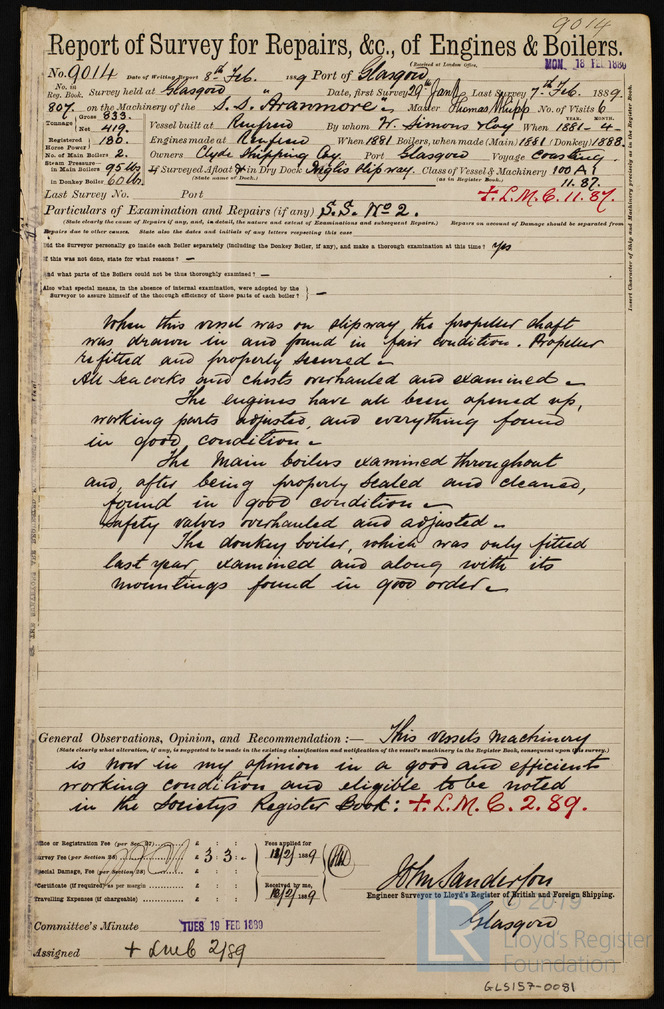 9014
Report of Survey for Repairs, &c., of Engines & Boilers.
(Received at London Office,
MON. 18 FEB 1889
No. 9014 Date of Writing Report 8th Feb. 1889 Port of Glasgow
No. in Reg. Book. Survey held at Glasgow Date, first Survey 29th Jany Last Survey 7th Feb. 1889.
807. on the Machinery of the S.S. "Aranmore" Master Thomas Whipp No. of Visits 6
Tonnage Gross 833. Net 419. Vessel built at Renfrew By whom W. Simons & Coy When YEAR. 1881 MONTH. 4
Registered Horse Power 130. Engines made at Renfrew When 1881 Boilers, when made (Main) 1881 (Donkey) 1888.
No. of Main Boilers 2. Owners Clyde Shipping Coy. Port Glasgow Voyage Coasting.
Steam Pressure in Main Boilers 95 lbs If Surveyed Afloat or in Dry Dock Inglis slipway. Class of Vessel & Machinery 100 A 1
in Donkey Boiler 60 lbs. (State name of Dock.) (as in Register Book.) 11.87.
Last Survey No. Port + L.M.C. 11.87.
Particulars of Examination and Repairs (if any) S.S. No 2.
(State clearly the cause of Repairs if any, and, in detail, the nature and extent of Examinations and subsequent Repairs.) Repairs on account of Damage should be separated from
Repairs due to other causes. State also the dates and initials of any letters respecting this case
Did the Surveyor personally go inside each Boiler separately (including the Donkey Boiler, if any), and make a thorough examination at this time? Yes
If this was not done, state for what reasons? —
And what parts of the Boilers could not be thus thoroughly examined? —
Also what special means, in the absence of internal examination, were adopted by the
Surveyor to assure himself of the thorough efficiency of those parts of each boiler? —
Insert Character of Ship and Machinery precisely as in the Register Book.
When this vessel was on slipway, the propeller shaft
was drawn in and found in fair condition. Propeller
refitted and properly secured.
All sea cocks and chests overhauled and examined.
The engines have all been opened up,
working parts adjusted, and everything found
in good condition.
The Main boilers examined throughout
and, after being properly scaled and cleaned,
found in good condition.
Safety valves overhauled and adjusted.
The donkey boiler, which was only fitted
last year, examined and along with its
mountings found in good order.
General Observations, Opinion, and Recommendation :— This vessel's machinery
(State clearly what alteration, if any, is suggested to be made in the existing classification and notification of the vessel's machinery in the Register Book, consequent upon this survey.)
is now in my opinion in a good and efficient
working condition and eligible to be noted
in the Society's Register Book: + L.M.C. 2.89.
Office or Registration Fee (per Sec. 27) £ : : Fees applied for
Survey Fee (per Section 28) £ 3 : 3 : - 18/2/1889
Special Damage, Fee (per Section 28) £ : :
Certificate (if required) as per margin £ : : Received by me,
Travelling Expenses (if chargeable) £ : : 18/2/1889
John Sanderson
Engineer Surveyor to Lloyd's Register of British and Foreign Shipping.
Glasgow
Committee's Minute TUES 19 FEB 1889
Assigned + LMC 2/89
© 2019
LR
Lloyd's Register
Foundation
GLS157-0081